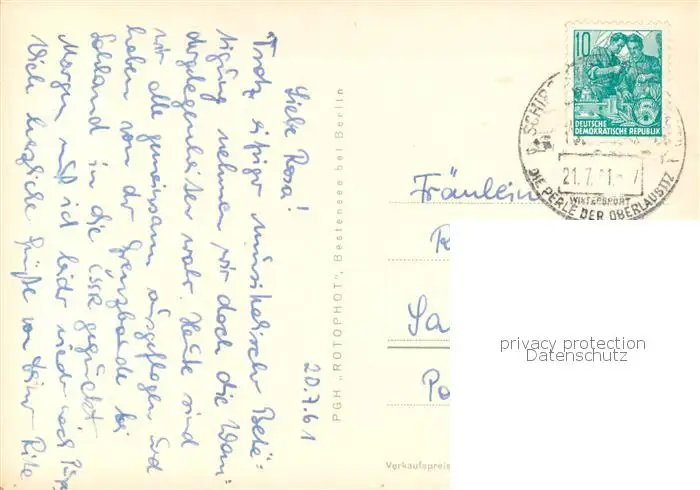 20.7.61
Liebe Rosa!
Trotz eifriger musikalischer Betä=
tigung nehmen wir doch die Wan-
dergelegenheiten wahr. Heute sind
wir alle gemeinsam ausgeflogen und
haben von der Grenzbaude bei
Sohland in die ČSSR geguckt
Morgen muß ich leider wieder nach
Dich herzliche Grüße von Deiner Rita
PGH „ROTOPHOT", Bestensee bei Berlin
10
DEUTSCHE
DEMOKRATISCHE REPUBLIK
SCHIRG
21.7.61-7
WINTERSPORT
DIE PERLE DER OBERLAUSITZ
Fräulein
R
Sa
Po
Verkaufspreis
privacy protection
Datenschutz